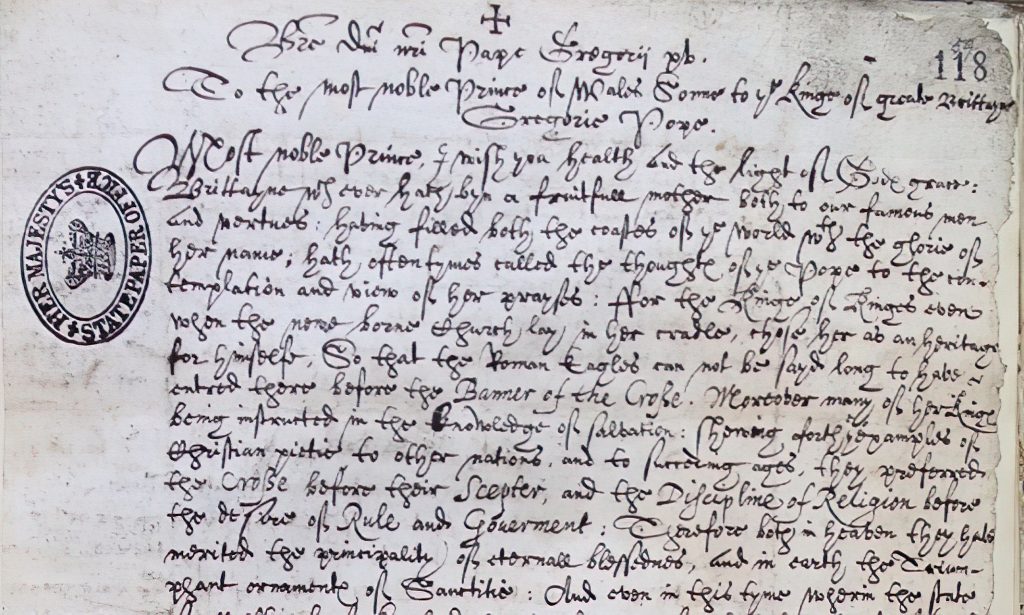 +
Bre Dni nri Pape Gregorij pb.
118
To the most noble Prince of Wales Sonne to ye Kinge of greate Brittayne
Gregorie Pope.
Most noble Prince, I wish you health and the light of Gods grace:
Brittayne wch ever hath byn a fruitfull mother both to our famous men
and vertues: having filled both the coastes of ye world wth the glorie of
her name; hath oftentymes called the thoughts of ye Pope to the con-
templation and view of her prayses: ffor the Kinge of Kinges even
when the newe borne Church lay in her cradle, chose her as an heritage
for himselfe, So that the Roman Eagles can not be sayd long to have
entred there before the Banner of the Crosse. Moreover many of her Kings
being instructed in the knowledge of salvation: shewing forth ye examples of
Christian pietie to other nations, and to succeding ages, they preferred
the Crosse before their Scepter, and the Discipline of Religion before
the desire of Rule and Goverment: Therefore both in heaven they have
merited the principality of eternall blessednes, and in earth the Trium-
phant ornaments of Sanctitie: And even in this tyme wherin the state
HER MAJESTYS STATE PAPER OFFICE